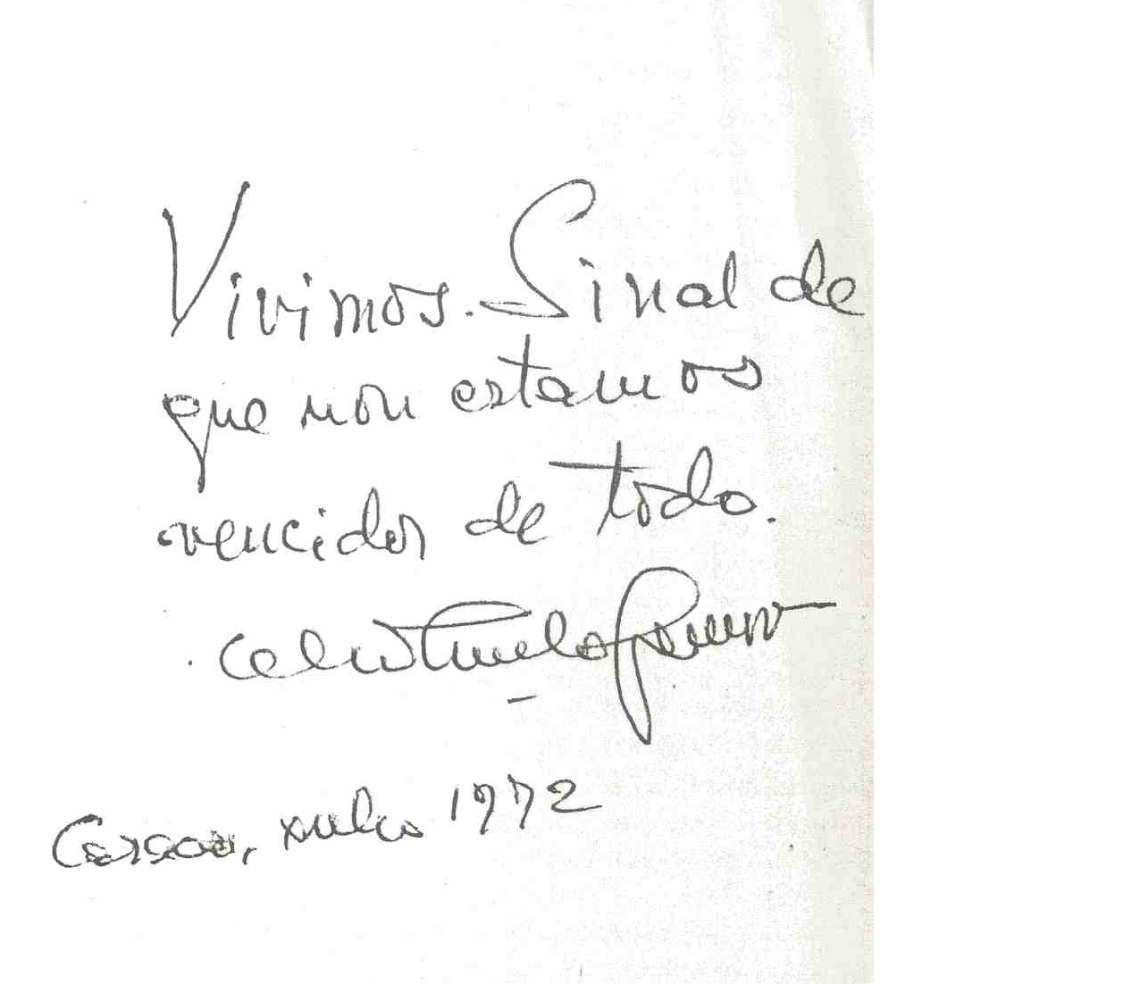 Vivimos. Sinal de
que non estamos
vencidos de todo.
Celso Emilio Ferreiro
Caracas, xulio 1972